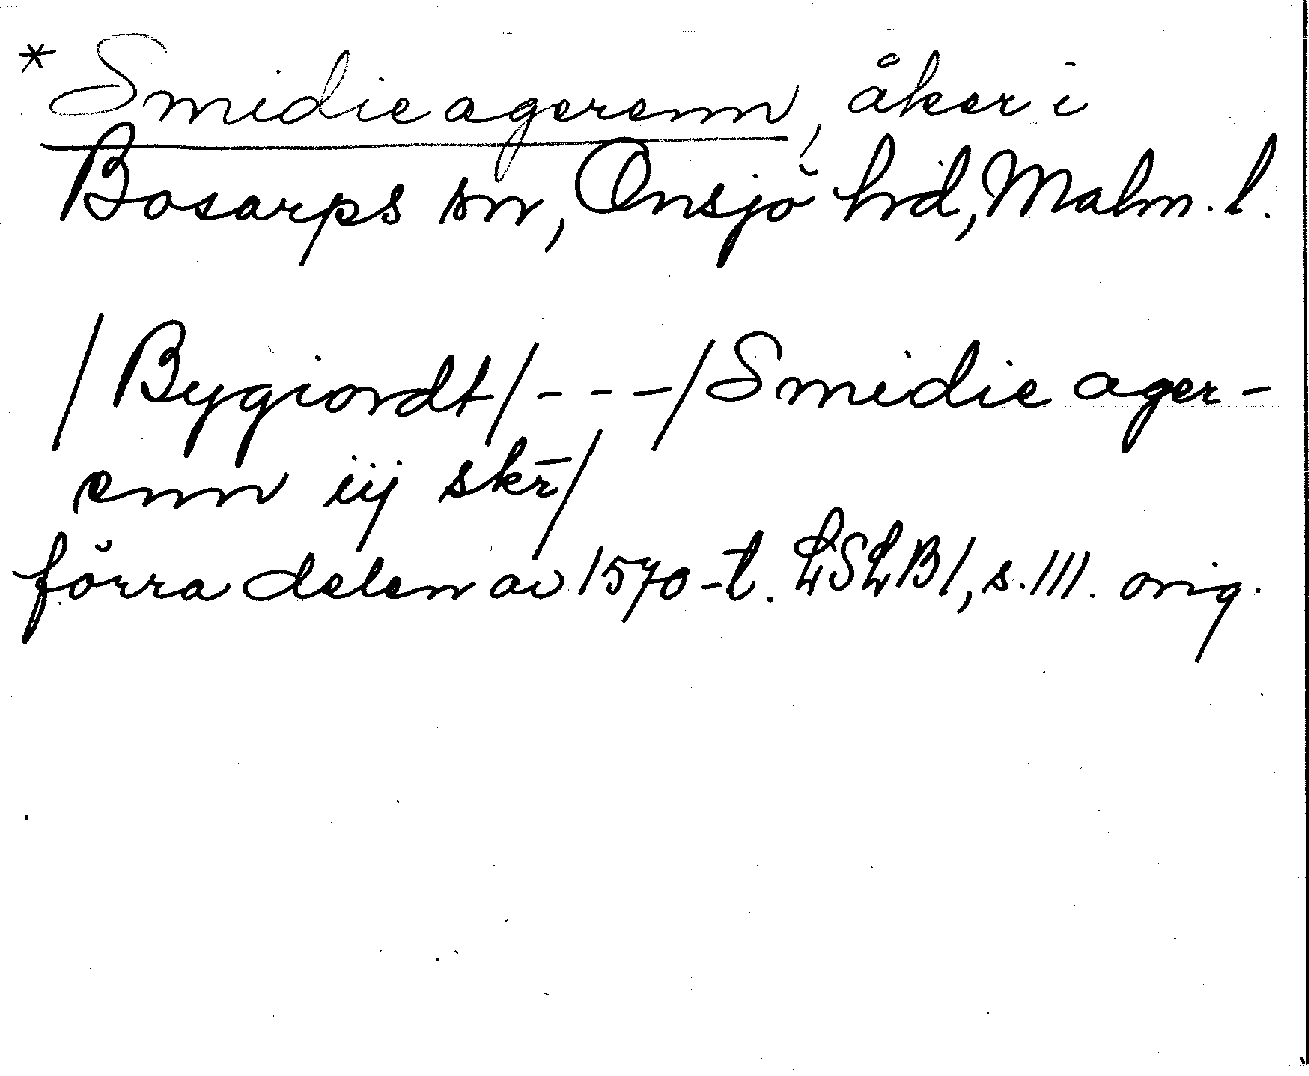 * Smidie agerenn, åker i
Bosarps sn, Onsjö hrd, Malm. l.
/Bygiordt/ - - - /Smidie ager-
enn iij skr̄/
förra delen av 1570-t. LSLB1, s. 111. orig.